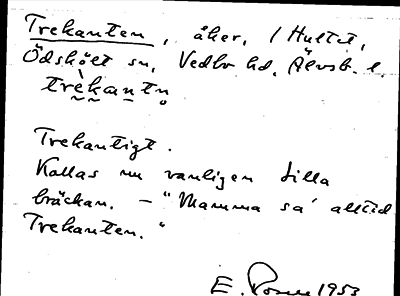 Trekanten, åker, 1 Hultet,
Ödskölt sn, Vedbo hd, Älvsb. l.
trèkantn
Trekantigt.
Kallas nu vanligen Lilla
bräckan. – "Mamma sa' alltid
Trekanten."
E. Rosen 1953